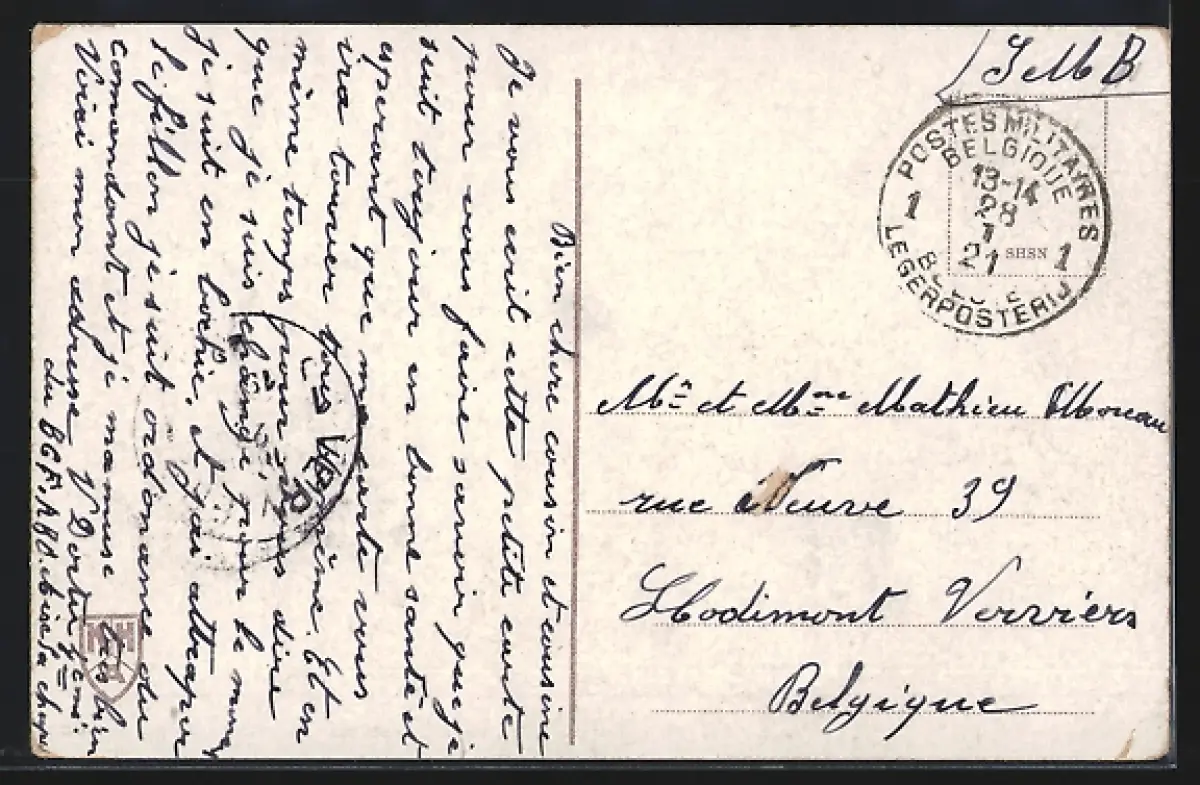 Bien chere cousin et cousine
Je vous ecrit cette petite carte
pour vous faire savoir que je
suit toujour en bonne santé et
esperant que ma carte vous
ira trouver tous de même. Et en
même temps pour vous dire
que je suis changé pour le moment
je suit en bochie, et j'ai attraper
le fillon je suit ordonance du
comendant et je mamuse tres bien
Voici mon adresse V Dortu
du
S M B
POSTES MILITAIRES
BELGIQUE
13-14
28
7
21
1 1
BELGIE
LEGERPOSTERIJ
SHSN
Mr et Mme Mathieu
rue Neuve 39
Hodimont Verviers
Belgique